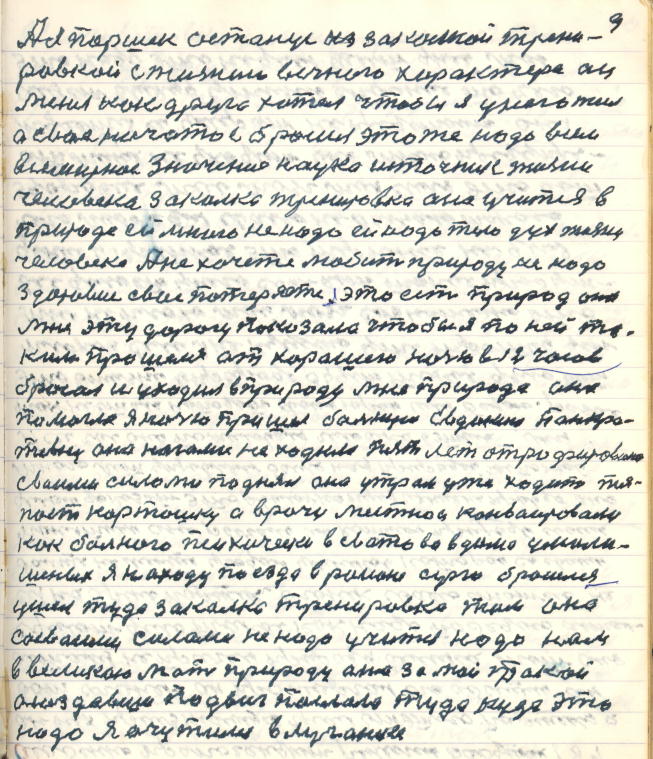 9
А я Паршек останус из закалкой трени-
ровкой с жизнии вечного характера он
меня как друга хотел чтобы я уничтожил
а свае начатое бросил это же надо всем
всемирное Значение наука источник жизни
человека закалка тренировка она учится в
природе ей много не надо ей надо тело дух жизнь
человека А не хочете любит природу не надо
здоровие свае потеряете, это ест природ она
мне эту дорогу показала чтобы я по ней та-
ким прошелся от хорошею ночю в 12 часов
бросал и уходил в природу мне природа она
помогла я ночю пришел болную Евдокию Панкра-
тивну она ногами не ходила пят лет отрофировано
своими силами поднял она утрам уже ходит тя-
пает картошку а врачи местнои конваировали
как болного психически в Сватово в дома умали-
шеных Я на ходу поезда в районе сурго бросился
ушел туда закалка тренировка там она
своваими силами не надо учится надо нам
в великою мат природу она за мой такой
создавши подвиг послала туда куда это
надо Я очутился в Лугански